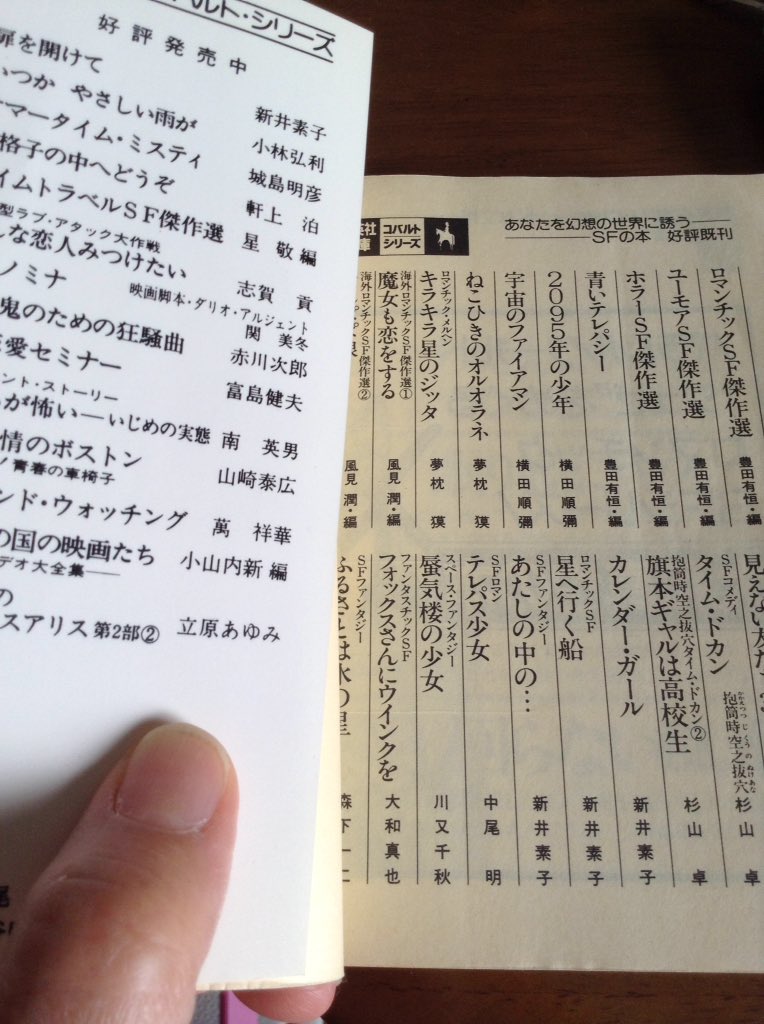 バルト・シリーズ
好評発売中
扉を開けて 新井素子
いつか やさしい雨が 小林弘利
サマータイム・ミスティ 城島明彦
格子の中へどうぞ 軒上 泊
イムトラベルSF傑作選 星 敬 編
型ラブ・アタック大作戦
んな恋人みつけたい 志賀 貢
ノミナ 映画脚本・ダリオ・アルジェント 関 美冬
鬼のための狂騒曲 赤川次郎
恋愛セミナー 富島健夫
ント・ストーリー
が怖い—いじめの実態 南 英男
情のボストン
青春の車椅子 山崎泰広
ンド・ウォッチング 萬 祥華
の国の映画たち 小山内新 編
デオ大全集—
の
スアリス 第2部② 立原あゆみ
あなたを幻想の世界に誘う——
——SFの本 好評既刊
コバルト
シリーズ
ロマンチックSF傑作選 豊田有恒・編
ユーモアSF傑作選 豊田有恒・編
ホラーSF傑作選 豊田有恒・編
青いテレパシー 豊田有恒・編
2095年の少年 横田順彌
宇宙のファイアマン 横田順彌
ねこひきのオルオラネ 夢枕 獏
ロマンチック・メルヘン
キラキラ星のジッタ 夢枕 獏
海外ロマンチックSF傑作選①
魔女も恋をする 風見 潤・編
海外ロマンチックSF傑作選②
風見 潤・編
見えない友だち
SFコメディ
タイム・ドカン 抱筒時空之抜穴 杉山 卓
抱筒時空之抜穴タイム・ドカン②
旗本ギャルは高校生 杉山 卓
カレンダー・ガール 新井素子
ロマンチックSF
星へ行く船 新井素子
SFファンタジー
あたしの中の… 新井素子
SFロマン
テレパス少女 中尾 明
スペース・ファンタジー
蜃気楼の少女 川又千秋
ファンタスチックSF
フォックスさんにウインクを 大和真也
SFファンタジー
ふるさとは水の星 森下一仁